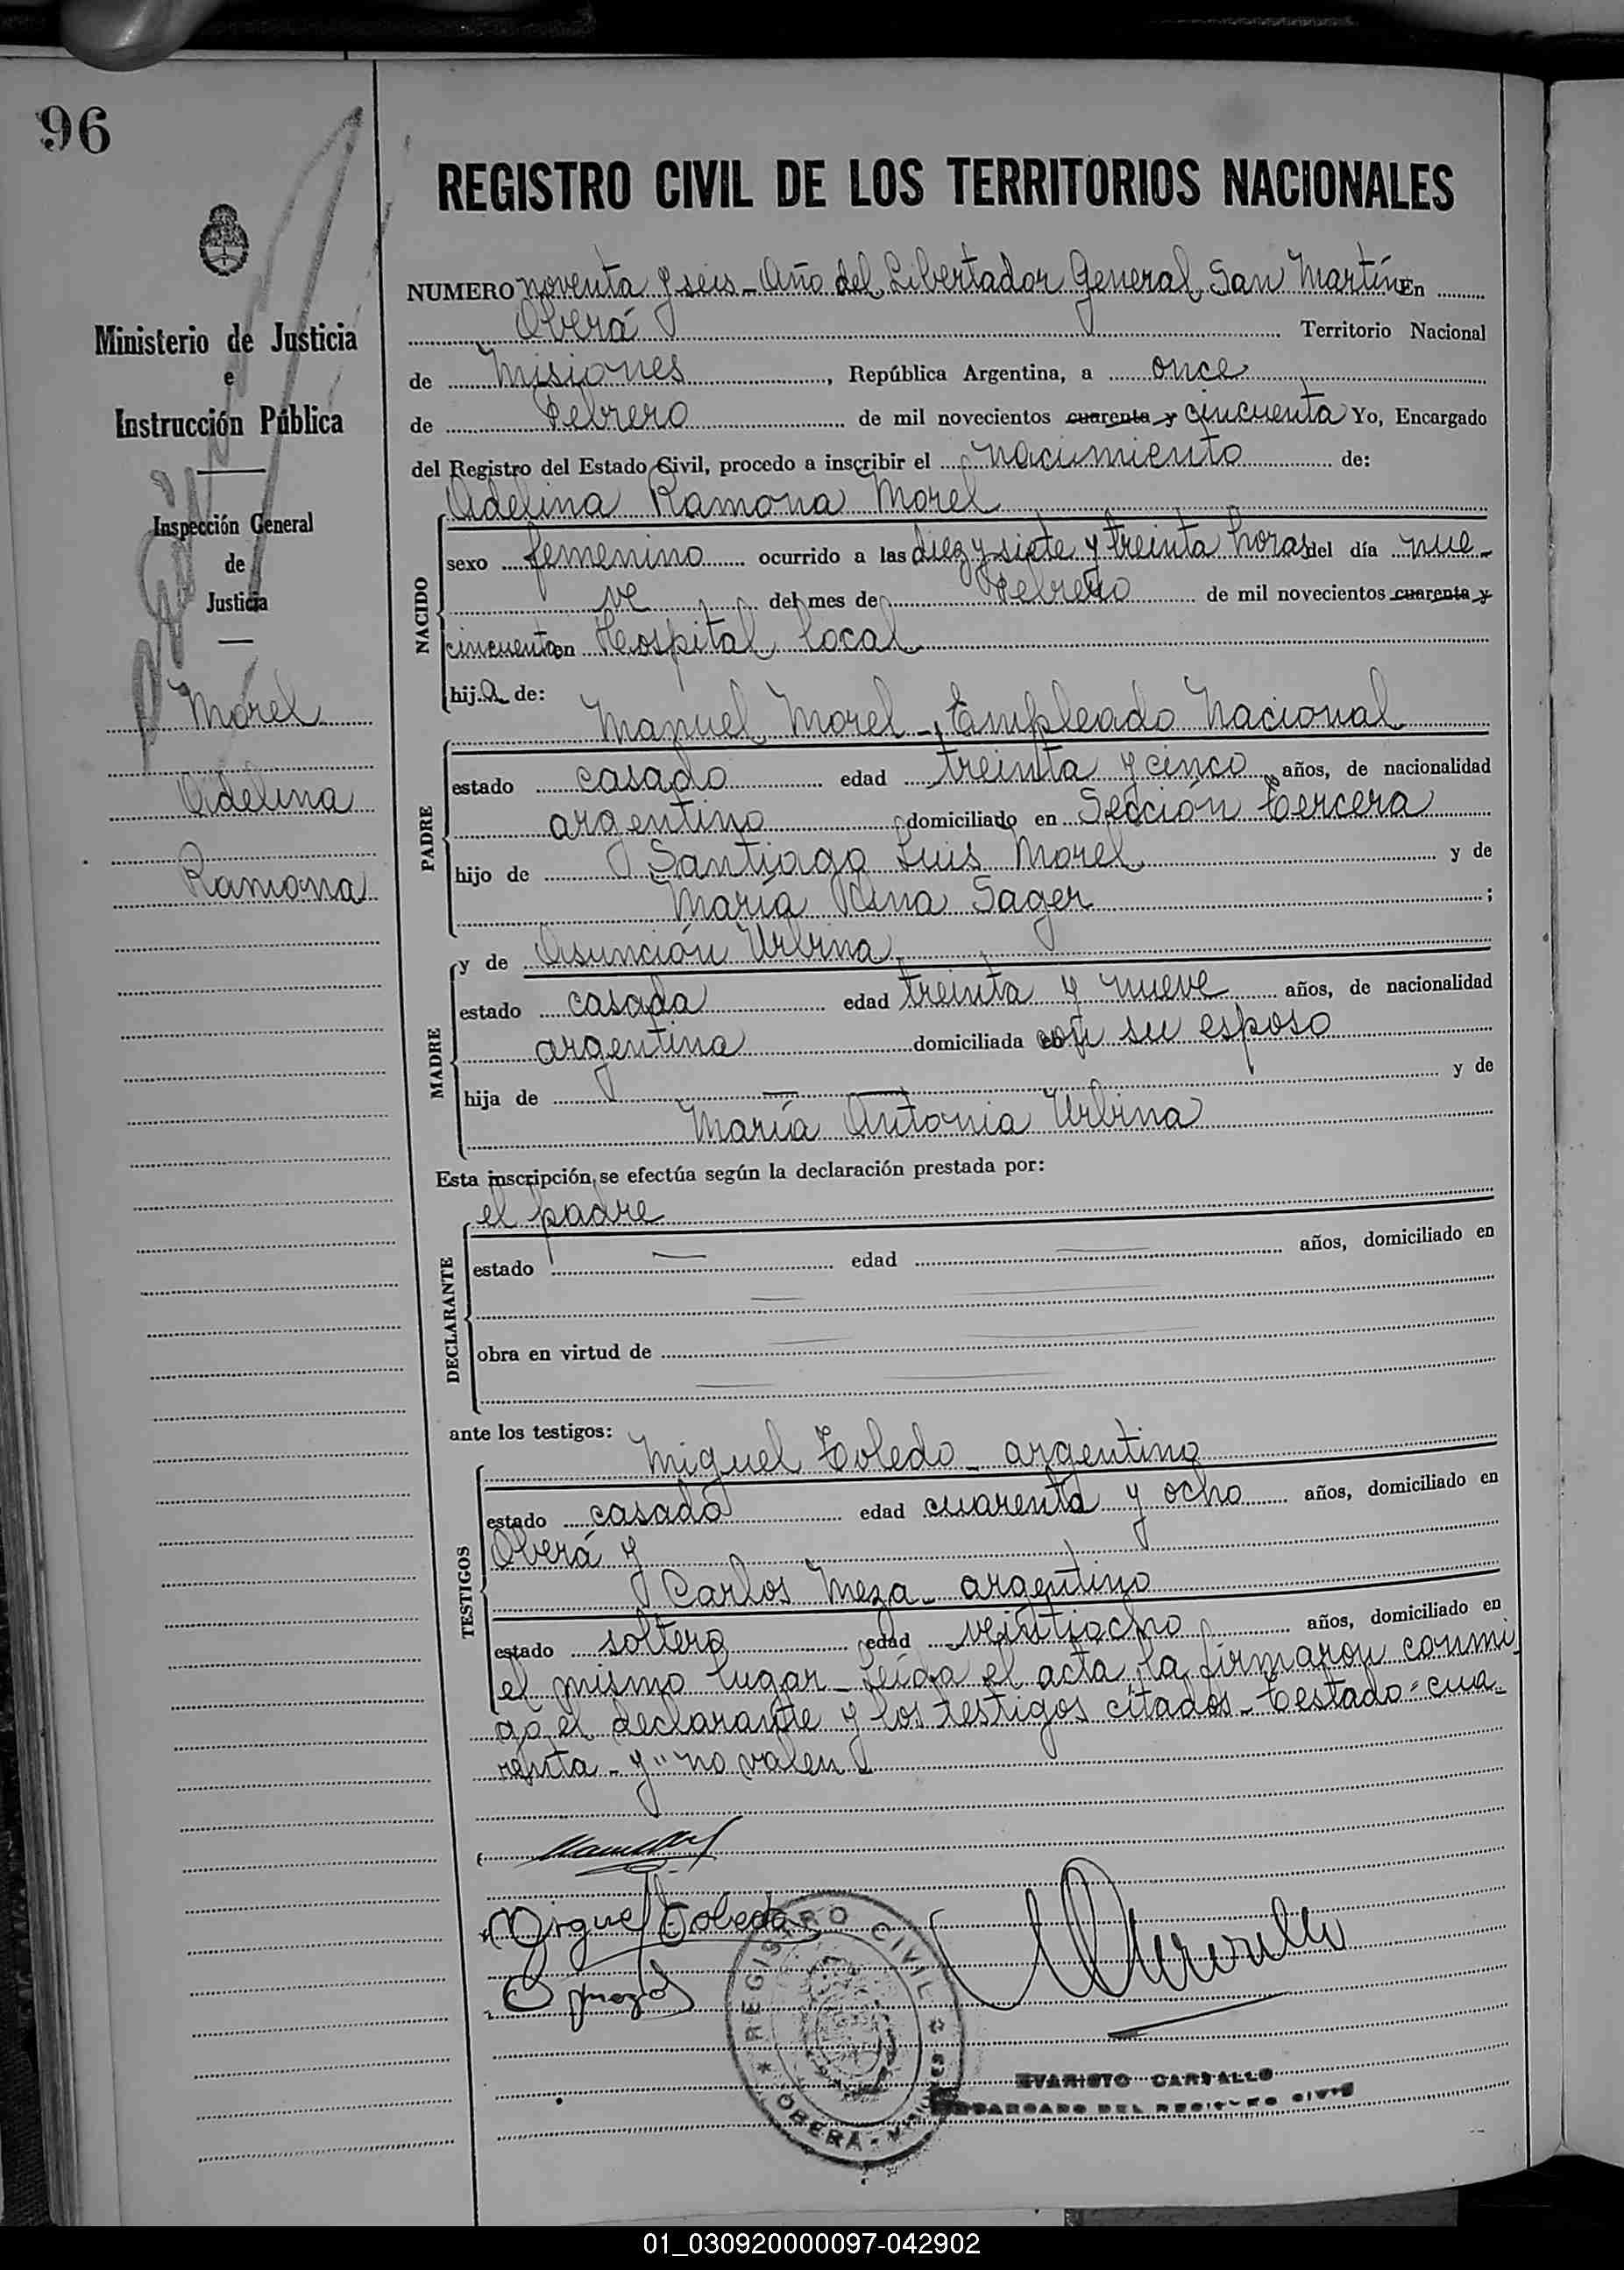 96
REGISTRO CIVIL DE LOS TERRITORIOS NACIONALES
Ministerio de Justicia
e
Instrucción Pública
Inspección General
de
Justicia
Morel
Adelina
Ramona
NUMERO noventa y seis - Año del Libertador General San Martín En
Oberá Territorio Nacional
de Misiones, República Argentina, a once
de Febrero de mil novecientos cuarenta y cincuenta Yo, Encargado
del Registro del Estado Civil, procedo a inscribir el nacimiento de:
Adelina Ramona Morel
NACIDO
sexo femenino ocurrido a las diez y siete y treinta horas del día nue-
ve del mes de Febrero de mil novecientos cuarenta y
cincuenta en Hospital local
hija de:
Manuel Morel - Empleado Nacional
PADRE
estado casado edad treinta y cinco años, de nacionalidad
argentino domiciliado en Sección tercera
hijo de Santiago Luis Morel y de
María Sager ;
MADRE
y de Asunción Urbina
estado casada edad treinta y nueve años, de nacionalidad
argentina domiciliada con su esposo
hija de — — y de
María Antonia Urbina
Esta inscripción se efectúa según la declaración prestada por:
el padre
DECLARANTE
estado — edad — años, domiciliado en
obra en virtud de
ante los testigos:
Miguel Toledo - argentino
TESTIGOS
estado casado edad cuarenta y ocho años, domiciliado en
Oberá y
Carlos Meza - argentino
estado soltero edad veintiocho años, domiciliado en
el mismo lugar - Leída el acta, la firmaron conmi-
go el declarante y los testigos citados - Testado "cua-
renta - y" no valen -
Miguel Toledo
REGISTRO CIVIL
OBERÁ -
EVARISTO CARVALLO
ENCARGADO DEL REGISTRO CIVIL
01_030920000097-042902